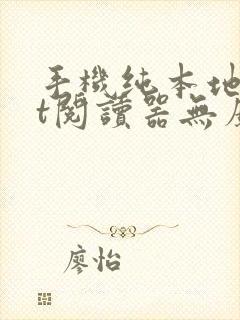 手機純本地
t閱讀器無
廖怡